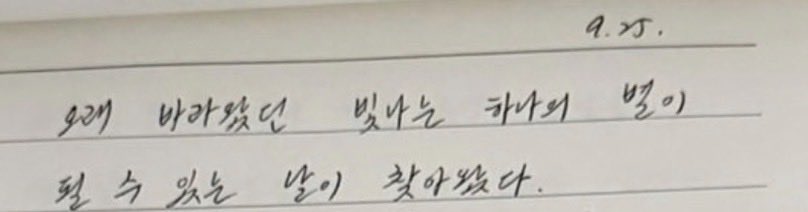 9.25.
오래 바라왔던 빛나는 하나의 별이
될 수 있는 날이 찾아왔다.